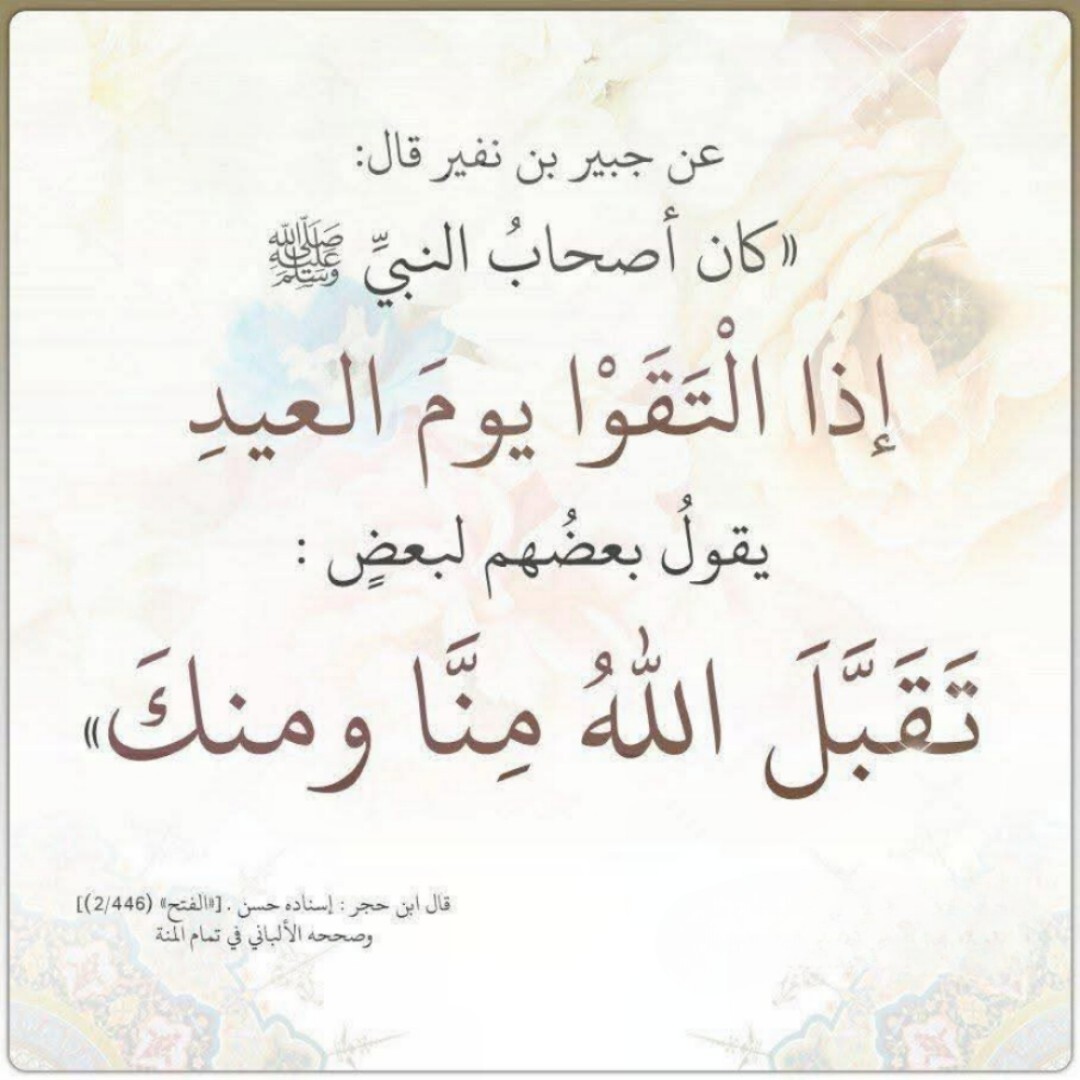 عن جبير بن نفير قال:
«كان أصحابُ النبيِّ ﷺ
إذا الْتَقَوْا يومَ العيدِ
يقولُ بعضُهم لبعضٍ :
تَقَبَّلَ اللهُ مِنَّا ومنكَ»
قال ابن حجر : إسناده حسن . [«الفتح» (2/446)]
وصححه الألباني في تمام المنة